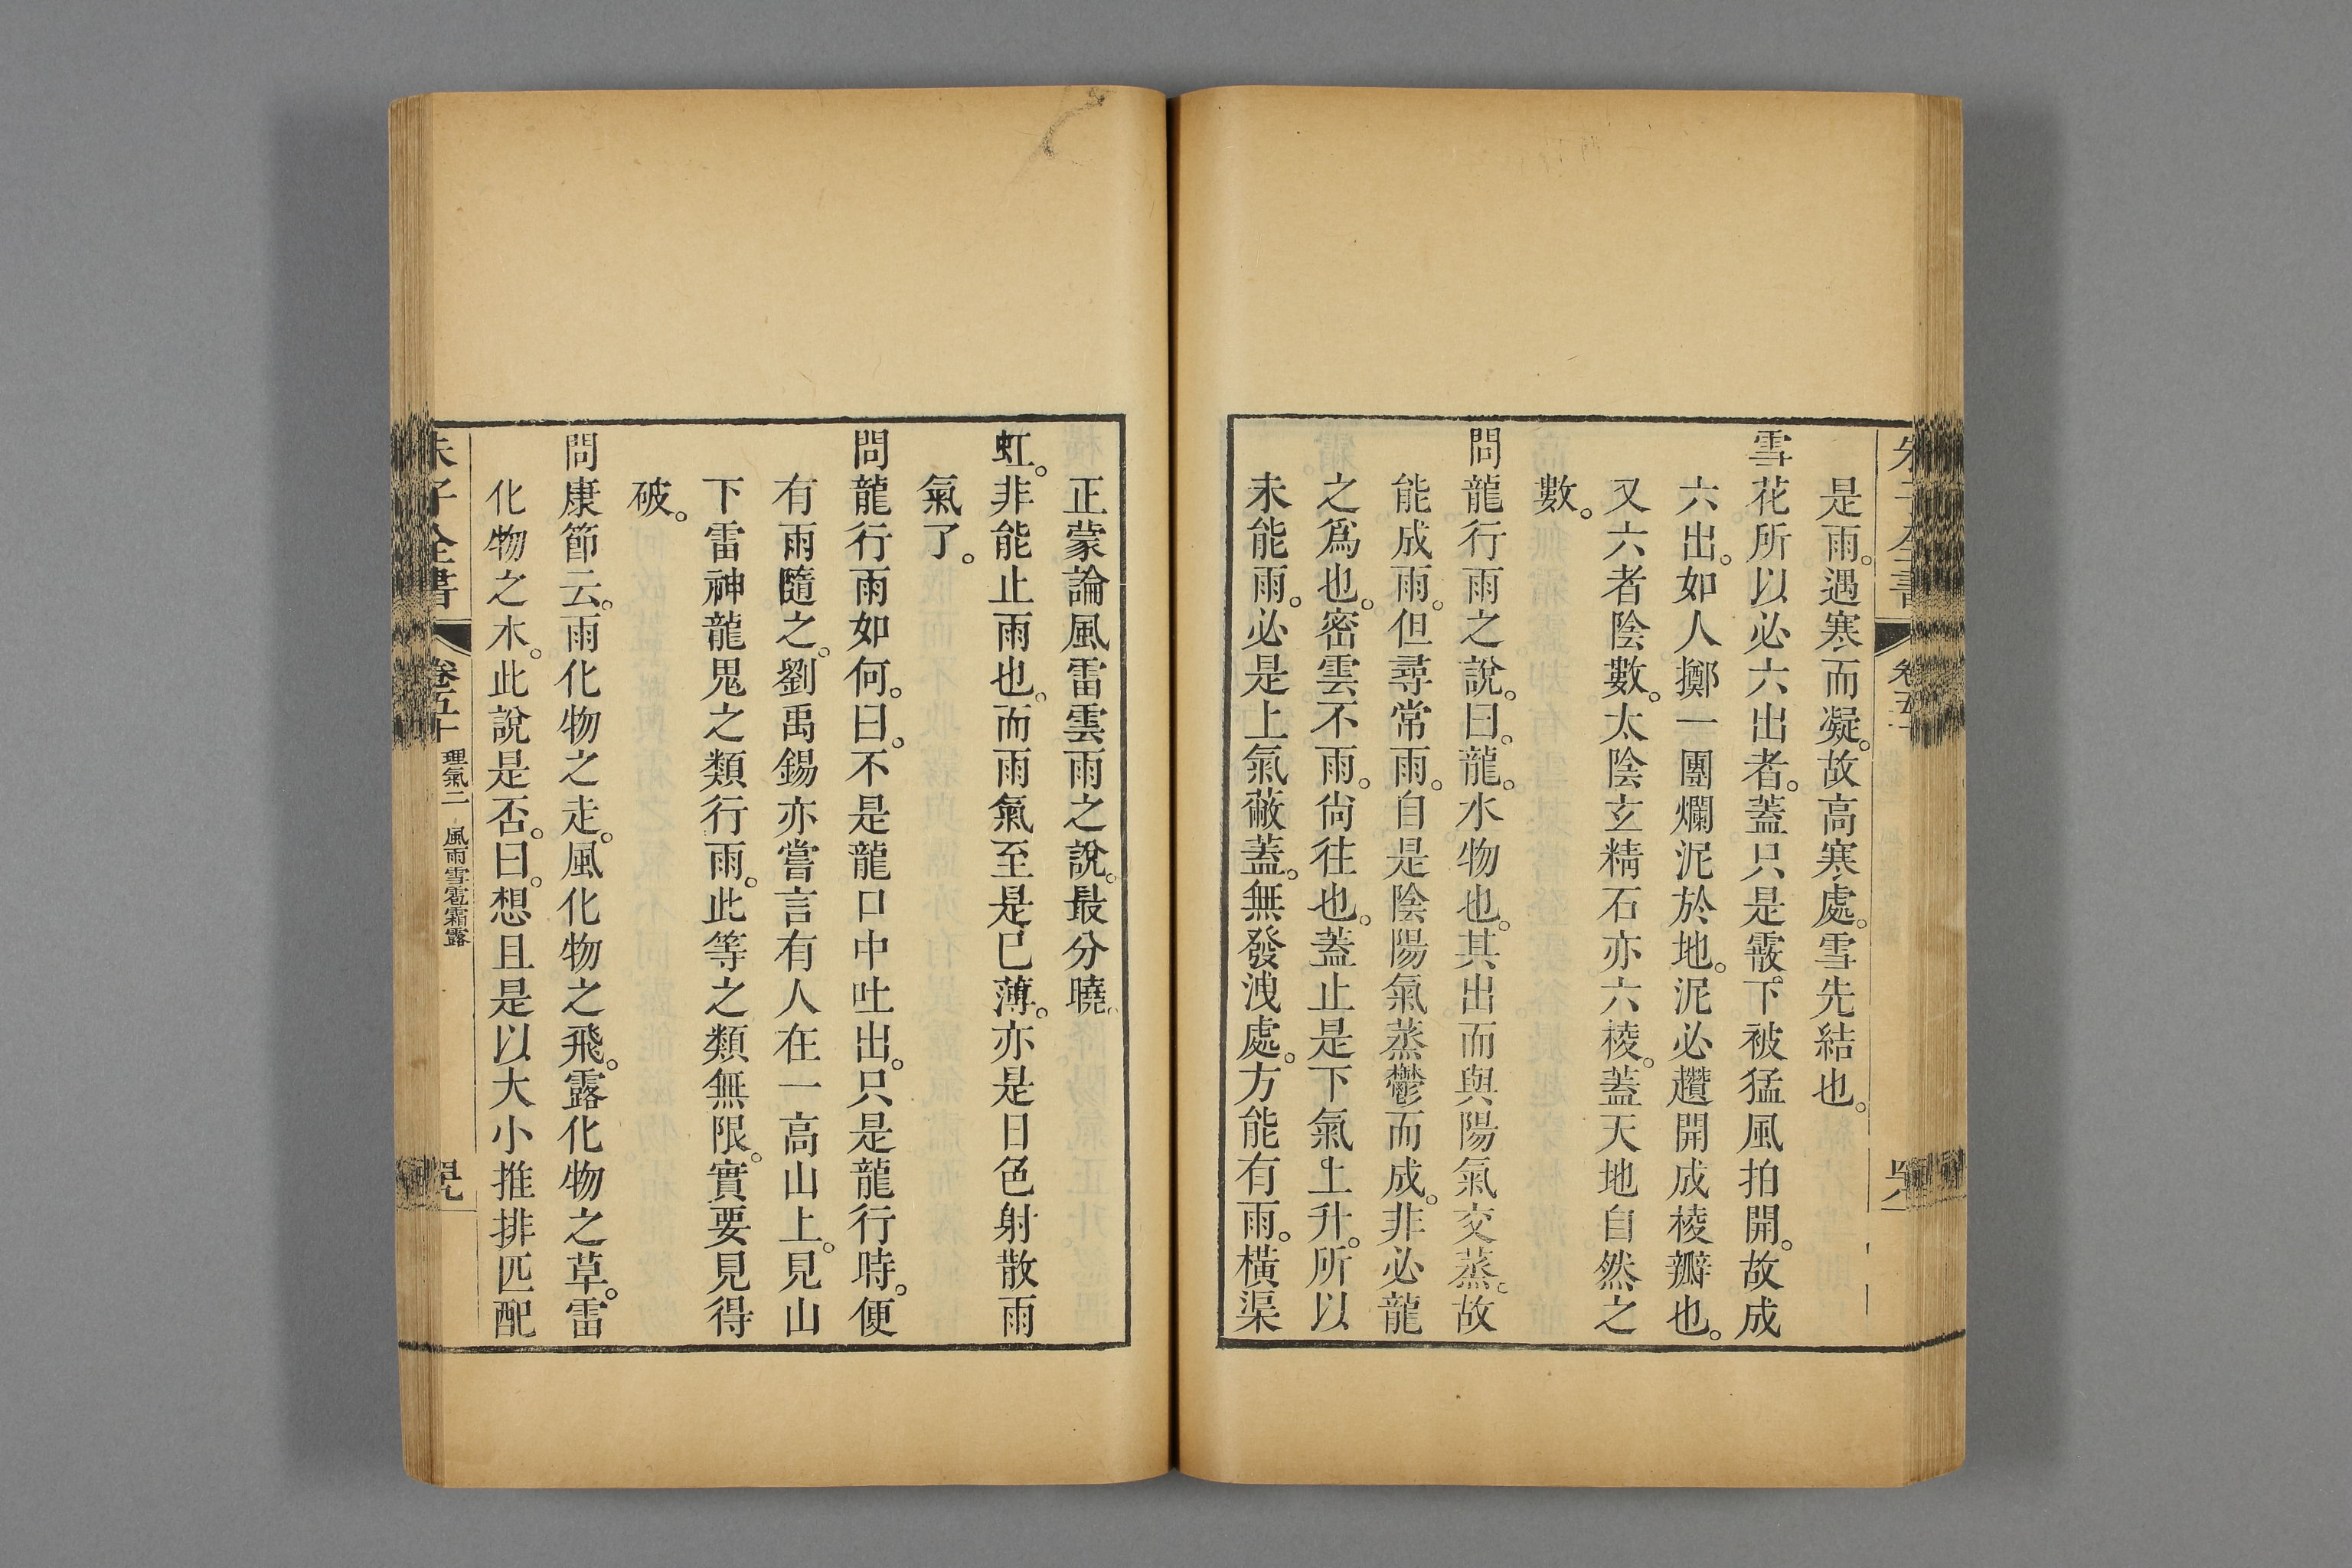 是雨。遇寒而凝。故高寒處。雪先結也。
雪花所以必六出者。蓋只是霰下被猛風拍開。故成
六出。如人擲一團爛泥於地。泥必攢開成棱瓣也。
又六者陰數。太陰玄精石亦六棱。蓋天地自然之
數。
問龍行雨之說。曰。龍。水物也。其出而與陽氣交蒸。故
能成雨。但尋常雨。自是陰陽氣蒸鬱而成。非必龍
之爲也。密雲不雨。尙往也。蓋止是下氣上升。所以
未能雨。必是上氣蔽蓋。無發洩處。方能有雨。橫渠
正蒙論風雷雲雨之說。最分曉。
虹。非能止雨也。而雨氣至是已薄。亦是日色射散雨
氣了。
問龍行雨如何。曰。不是龍口中吐出。只是龍行時。便
有雨隨之。劉禹錫亦嘗言有人在一高山上。見山
下雷神龍鬼之類行雨。此等之類無限。實要見得
破。
問康節云。雨化物之走。風化物之飛。露化物之草。雷
化物之木。此說是否。曰。想且是以大小推排匹配
朱子全書 卷五十 理氣二 風雨雪雹霜露